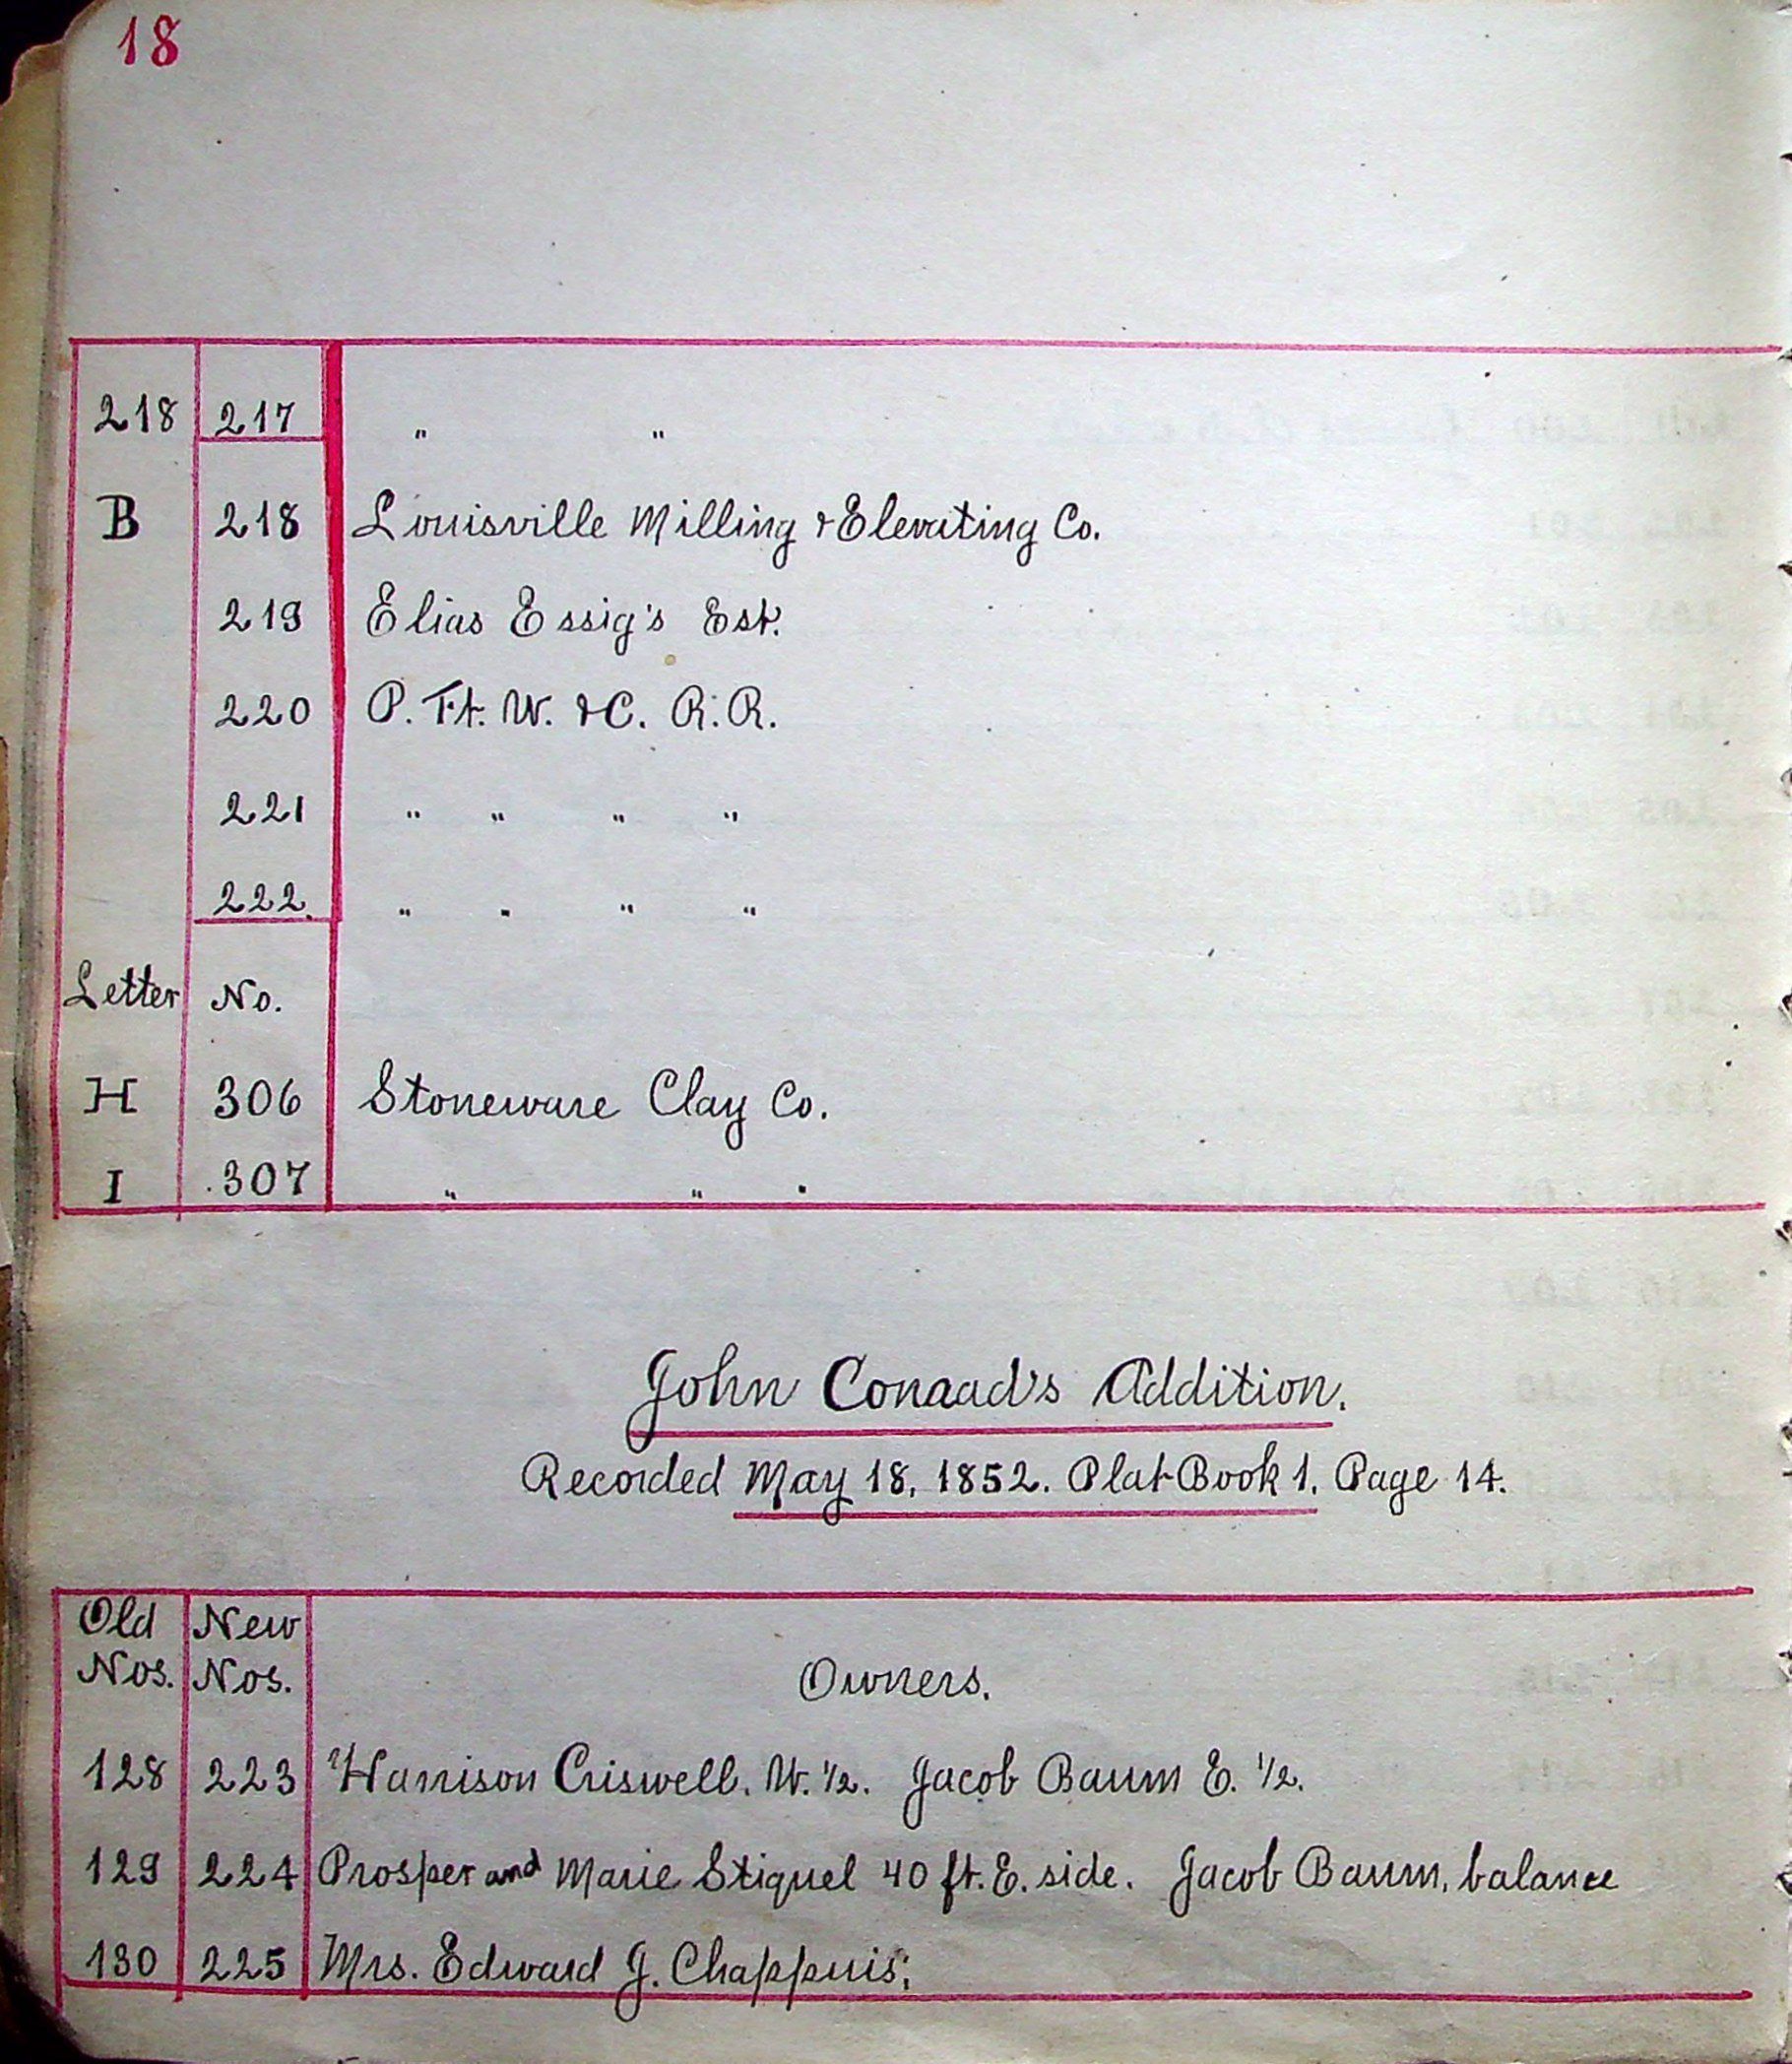 18
218 217 " "
B 218 Louisville Milling & Elevating Co.
219 Elias Essig's Est.
220 P. Ft. W. & C. R. R.
221 " " " "
222. " " " "
Letter No.
H 306 Stoneware Clay Co.
I 307 " " "
John Conrad's Addition.
Recorded May 18, 1852. Plat Book 1, Page 14.
Old New
Nos. Nos. Owners.
128 223 Harrison Criswell. W. 1/2. Jacob Baum E. 1/2.
129 224 Prosper and Marie Stiquel 40 ft. E. side. Jacob Baum, balance
130 225 Mrs. Edward J. Chappuis.